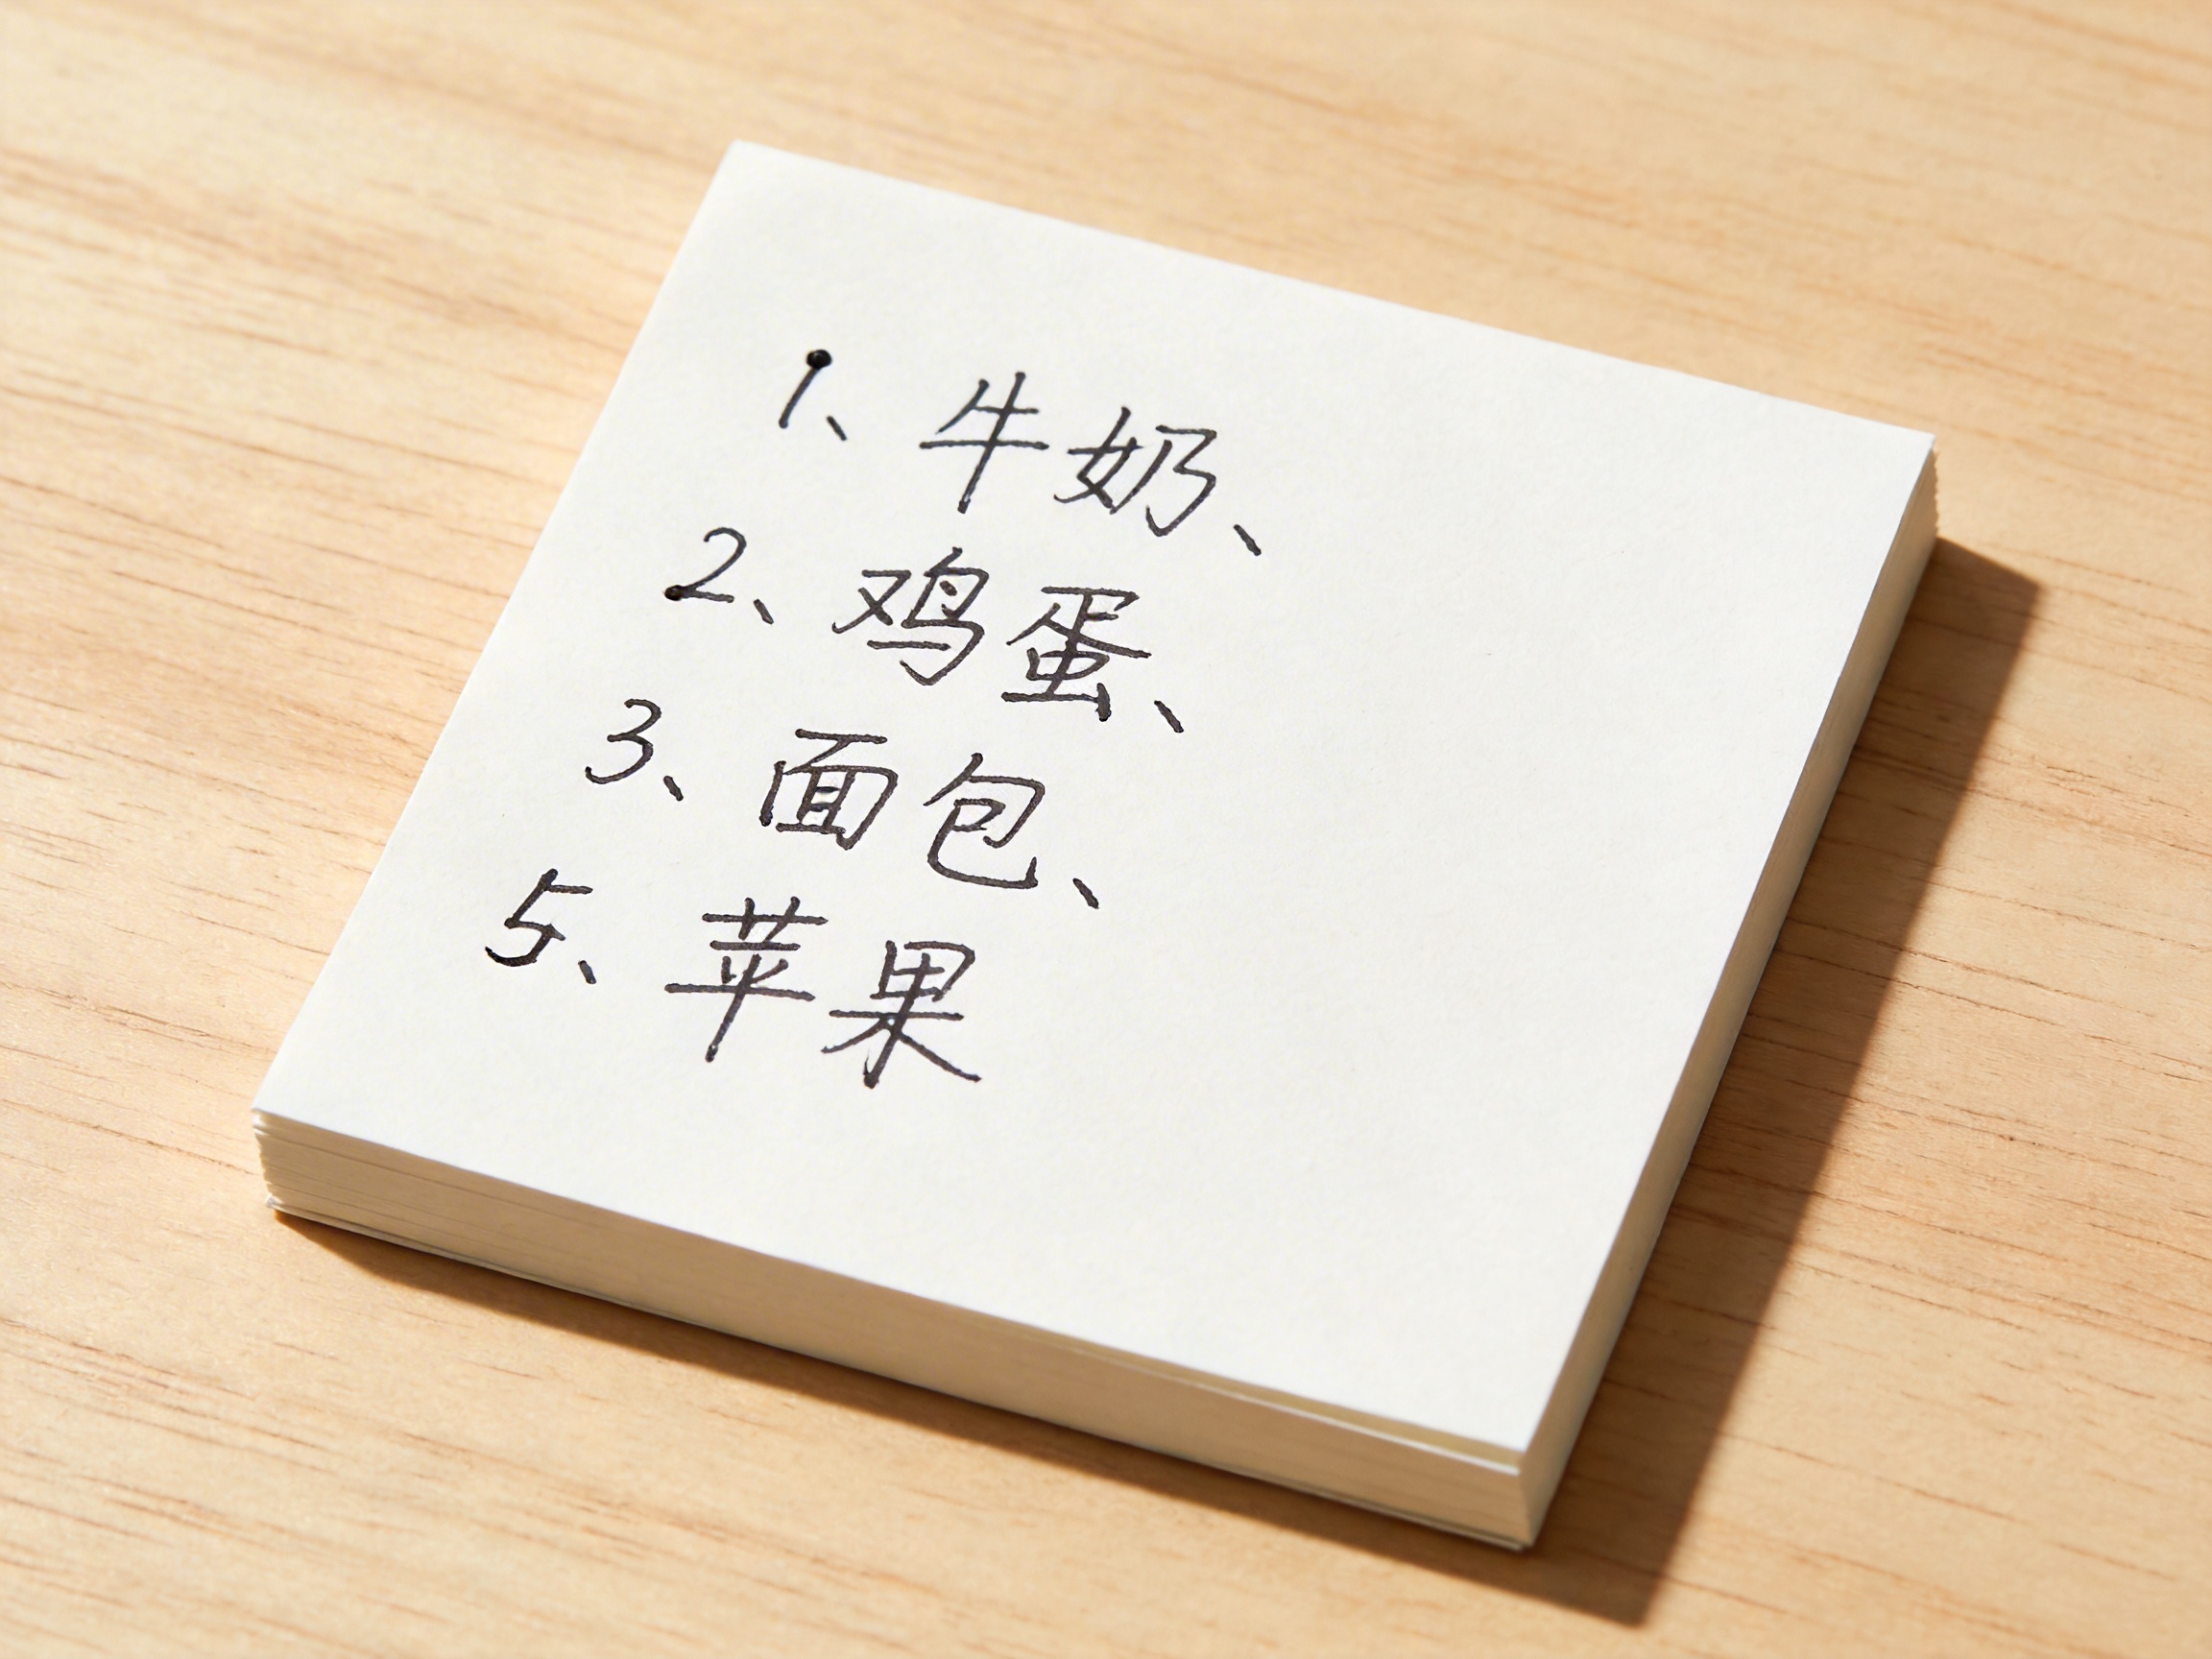 1、牛奶、
2、鸡蛋、
3、面包、
5、苹果